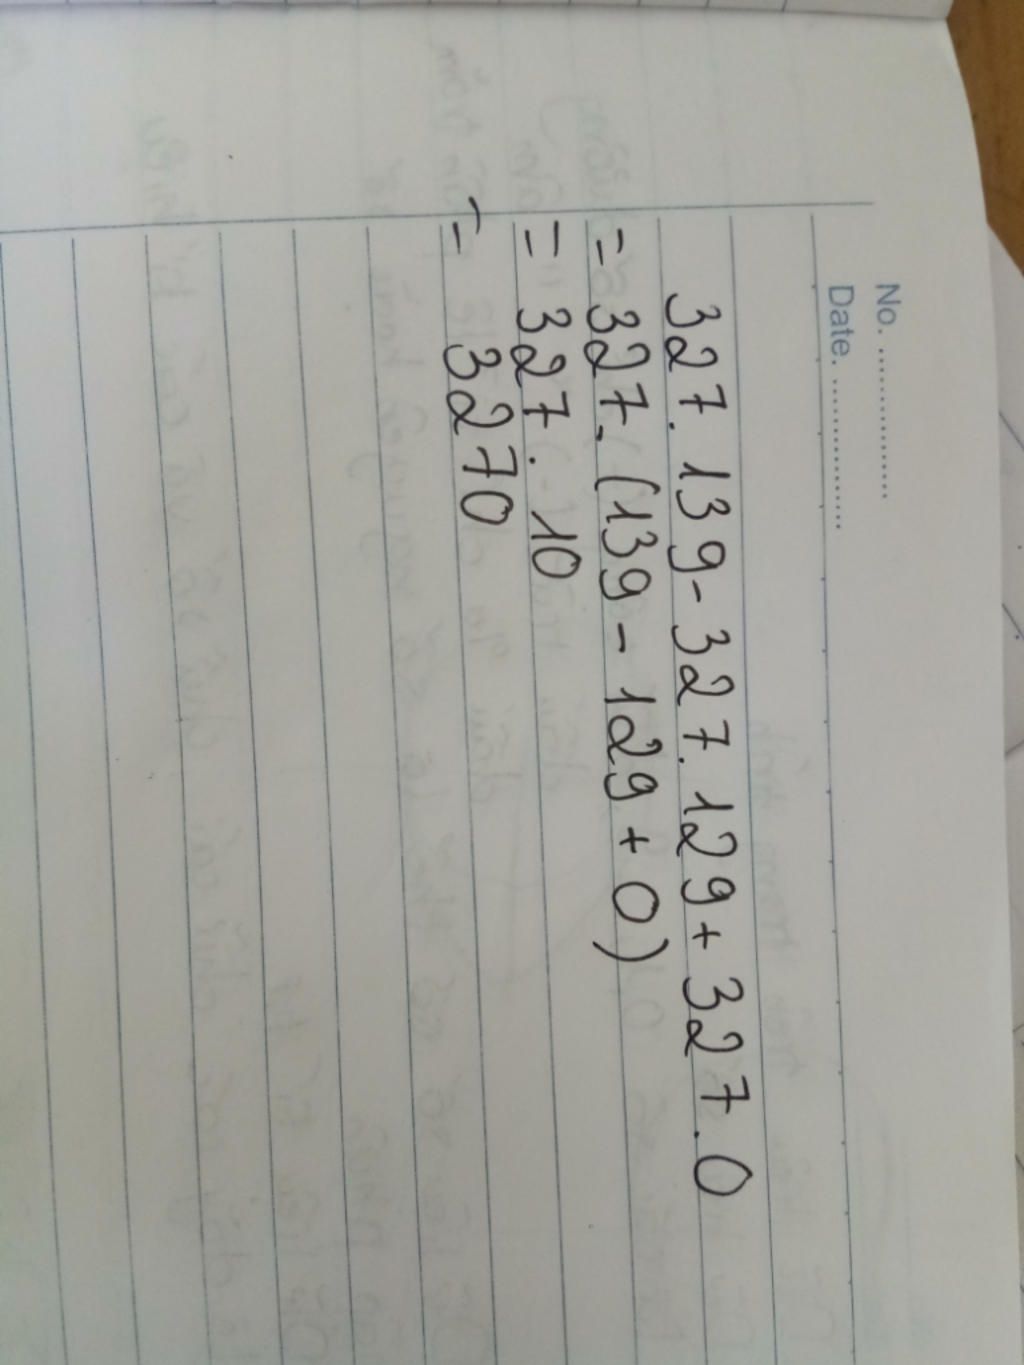 No. ................
Date. ................
327. 139 - 327. 129 + 327. 0
= 327. (139 - 129 + 0)
= 327. 10
= 3270